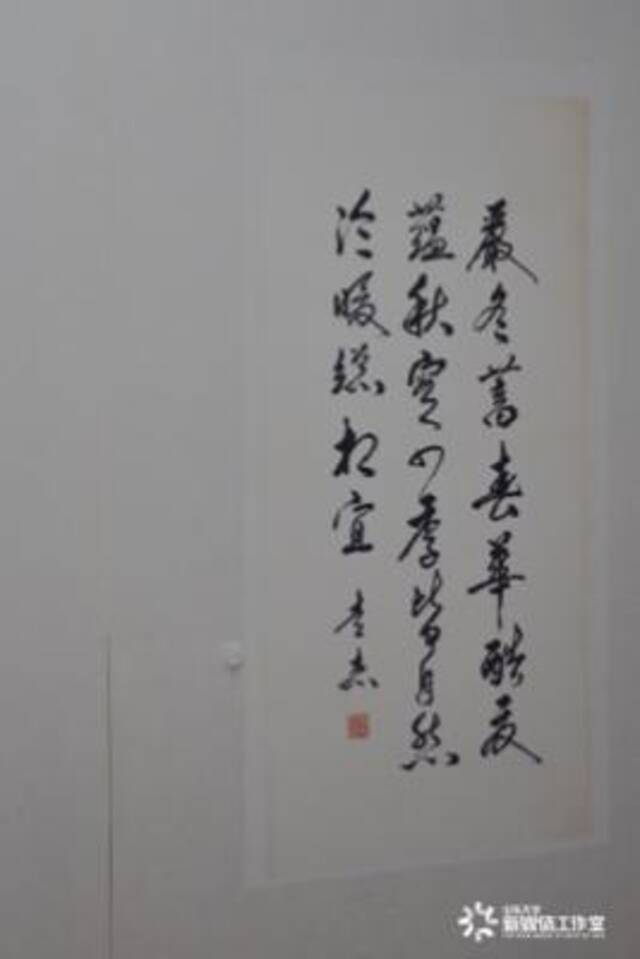 嚴冬蓄春華酷夏
蘊秋實四季皆自然
冷暖總相宜
李杰
新媒体工作室